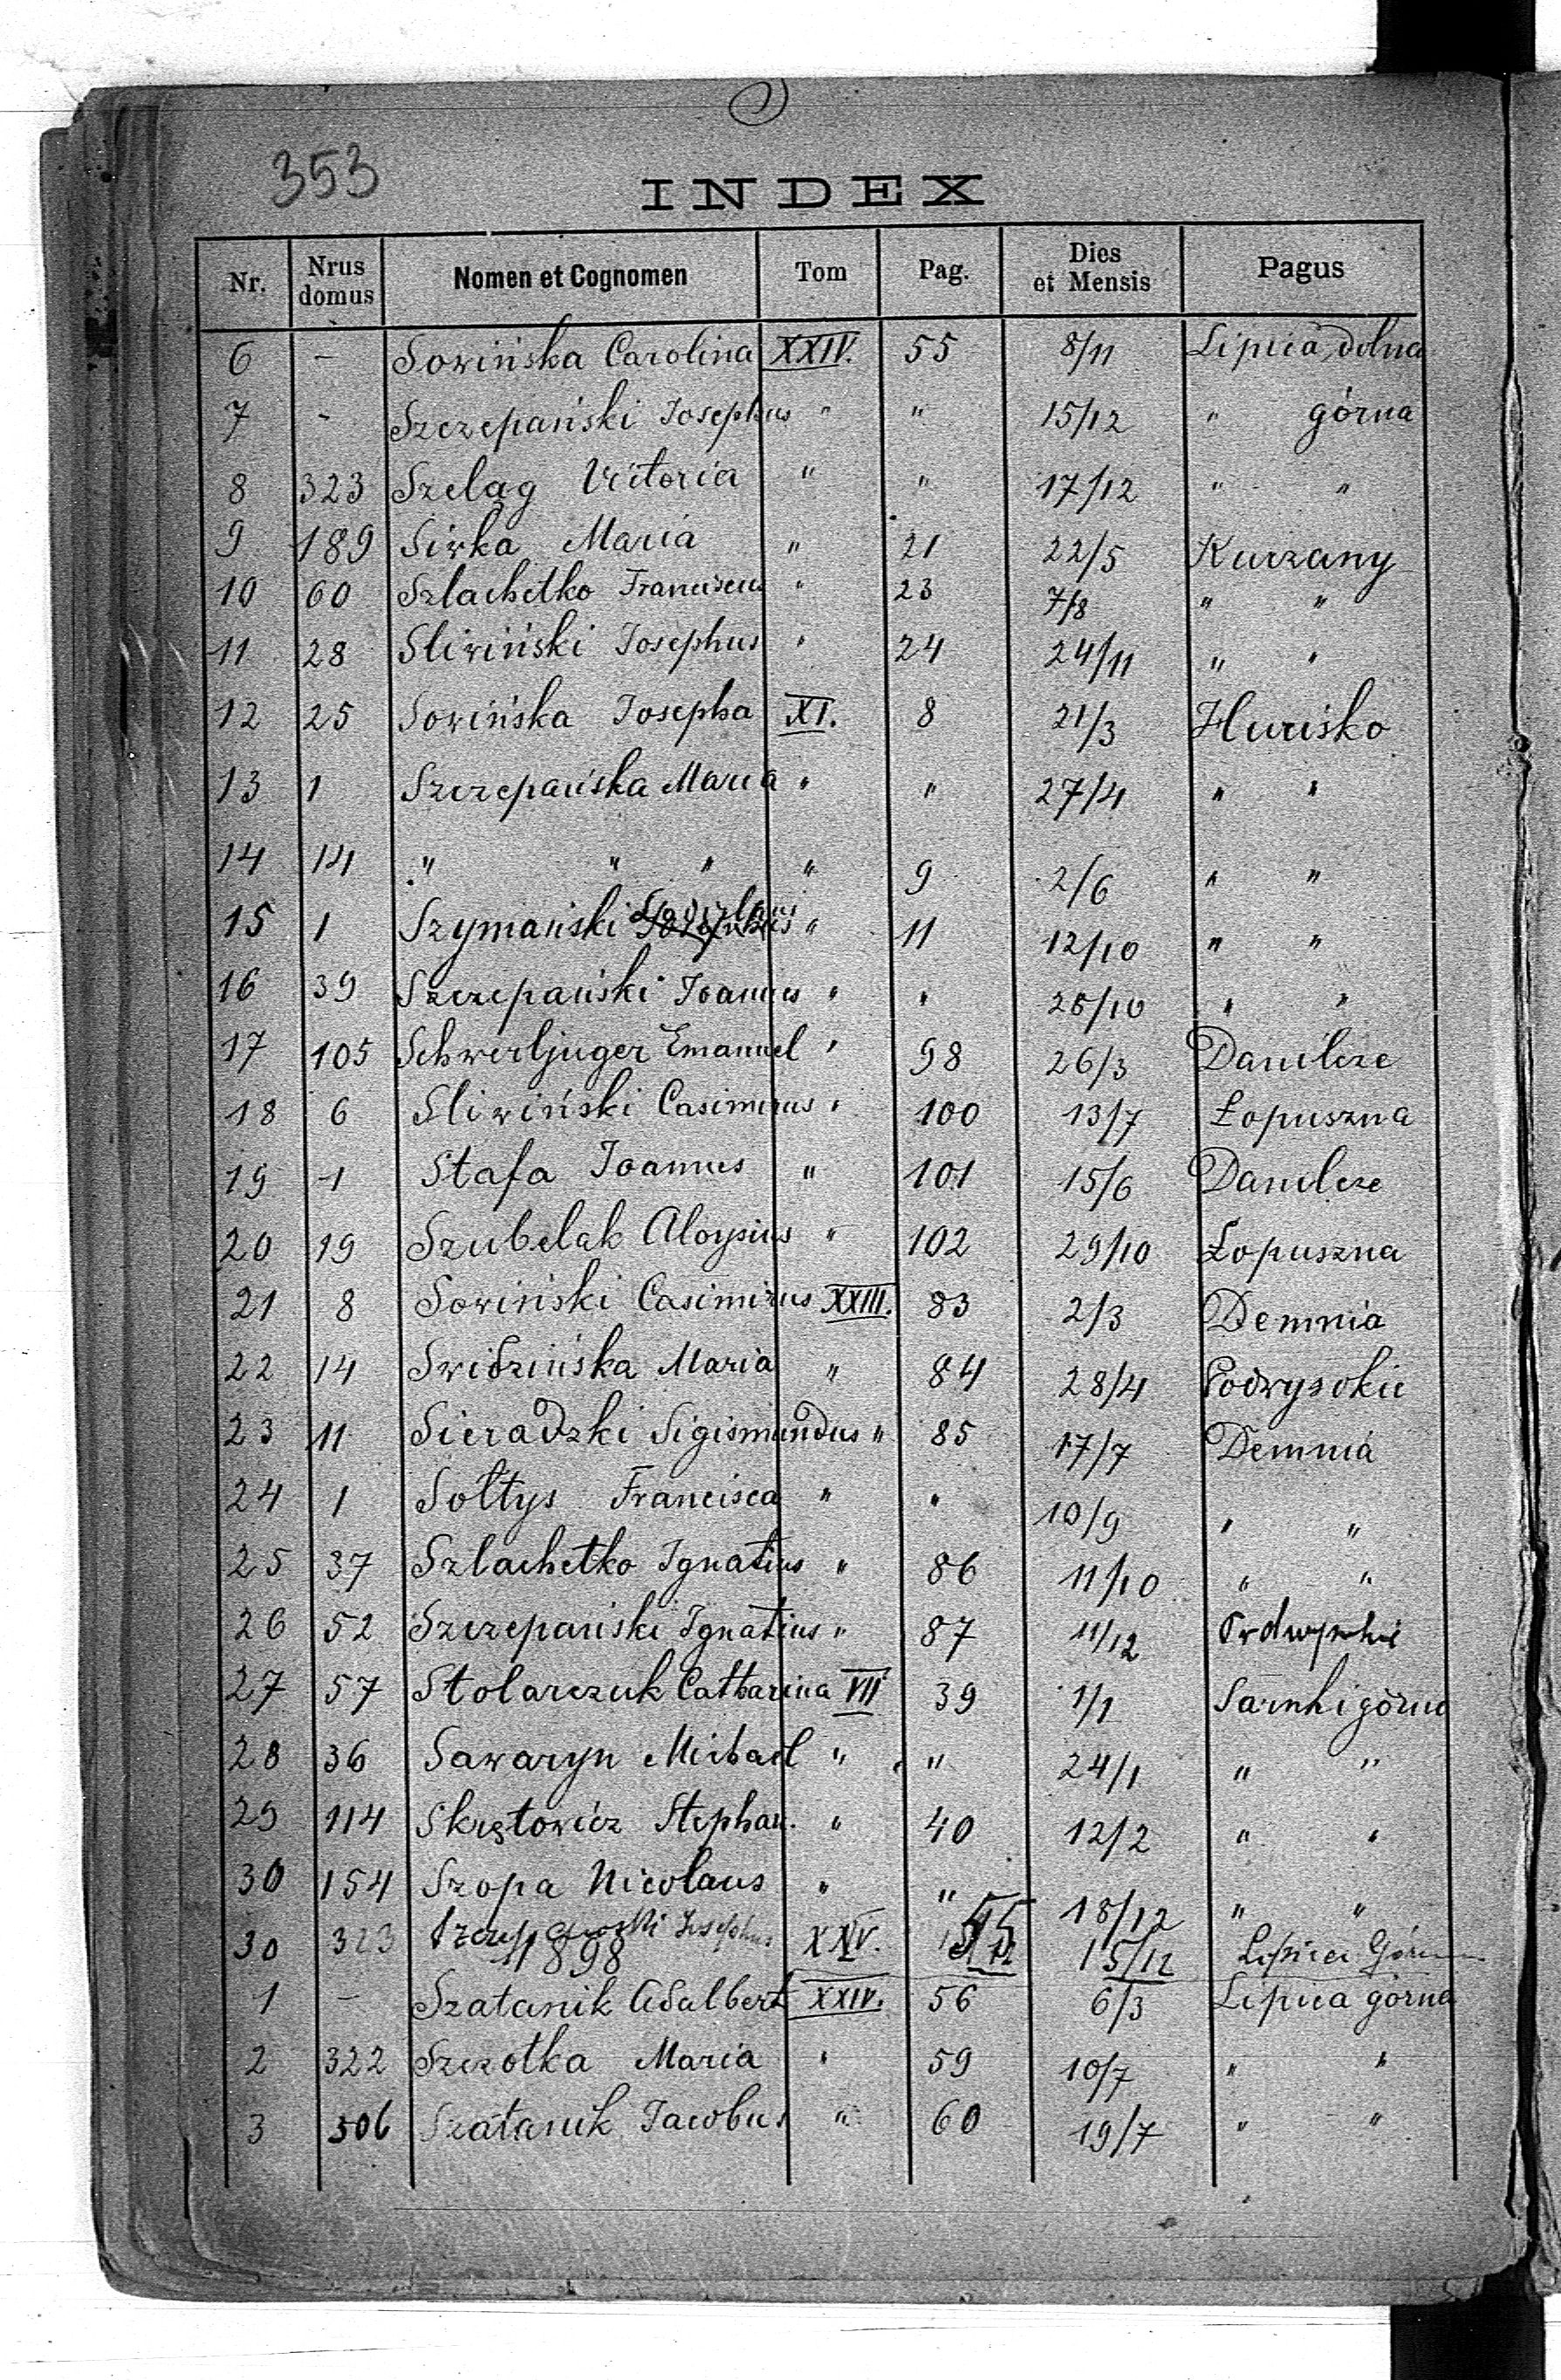 353
INDEX
Nr. Nrus domus Nomen et Cognomen Tom Pag. Dies et Mensis Pagus
6 - Sowińska Carolina XXIV. 55 8/11 Lipica dolna
7 - Szczepański Josephus " " 15/12 " górna
8 323 Szeląg Victoria " " 17/12 " "
9 189 Siwka Maria " 21 22/5 Kurzany
10 60 Szlachetko Franciscus " 23 7/8 " "
11 28 Sliwiński Josephus " 24 24/11 " "
12 25 Sowińska Josepha XI. 8 21/3 Hucisko
13 1 Szczepańska Maria " " 27/4 " "
14 14 " " " " 9 2/6 " "
15 1 Szymański " 11 12/10 " "
16 39 Szczepański Joannes " " 26/10 " "
17 105 Emanuel " 98 26/3 Danilcze
18 6 Sliwiński Casimirus " 100 13/7 Łopuszna
19 1 Stafa Joannes " 101 15/6 Danilcze
20 19 Szubelak Aloysius " 102 29/10 Łopuszna
21 8 Sowiński Casimirus XXIII. 83 2/3 Demnia
22 14 Swidzińska Maria " 84 28/4 Podwysokie
23 11 Sieradzki Sigismundus " 85 17/7 Demnia
24 1 Sołtys Francisca " " 10/9 " "
25 37 Szlachetko Ignatius " 86 11/10 " "
26 52 Szczepański Ignatius " 87 11/12 Podwysokie
27 57 Stolarczuk Catharina VII 39 1/1 Sarnki górne
28 36 Sawaryn Michael " " 24/1 " "
29 114 Skrętowicz Stephan. " 40 12/2 " "
30 154 Szopa Nicolaus " " 18/12 " "
30 323 Szczepański Josephus XXV. 55 15/12 Lipica Górna
1898
1 - Szatanik Adalbert XXIV. 56 6/3 Lipica górna
2 322 Szczotka Maria " 59 10/7 " "
3 306 Szatanik Jacobus " 60 19/7 " "